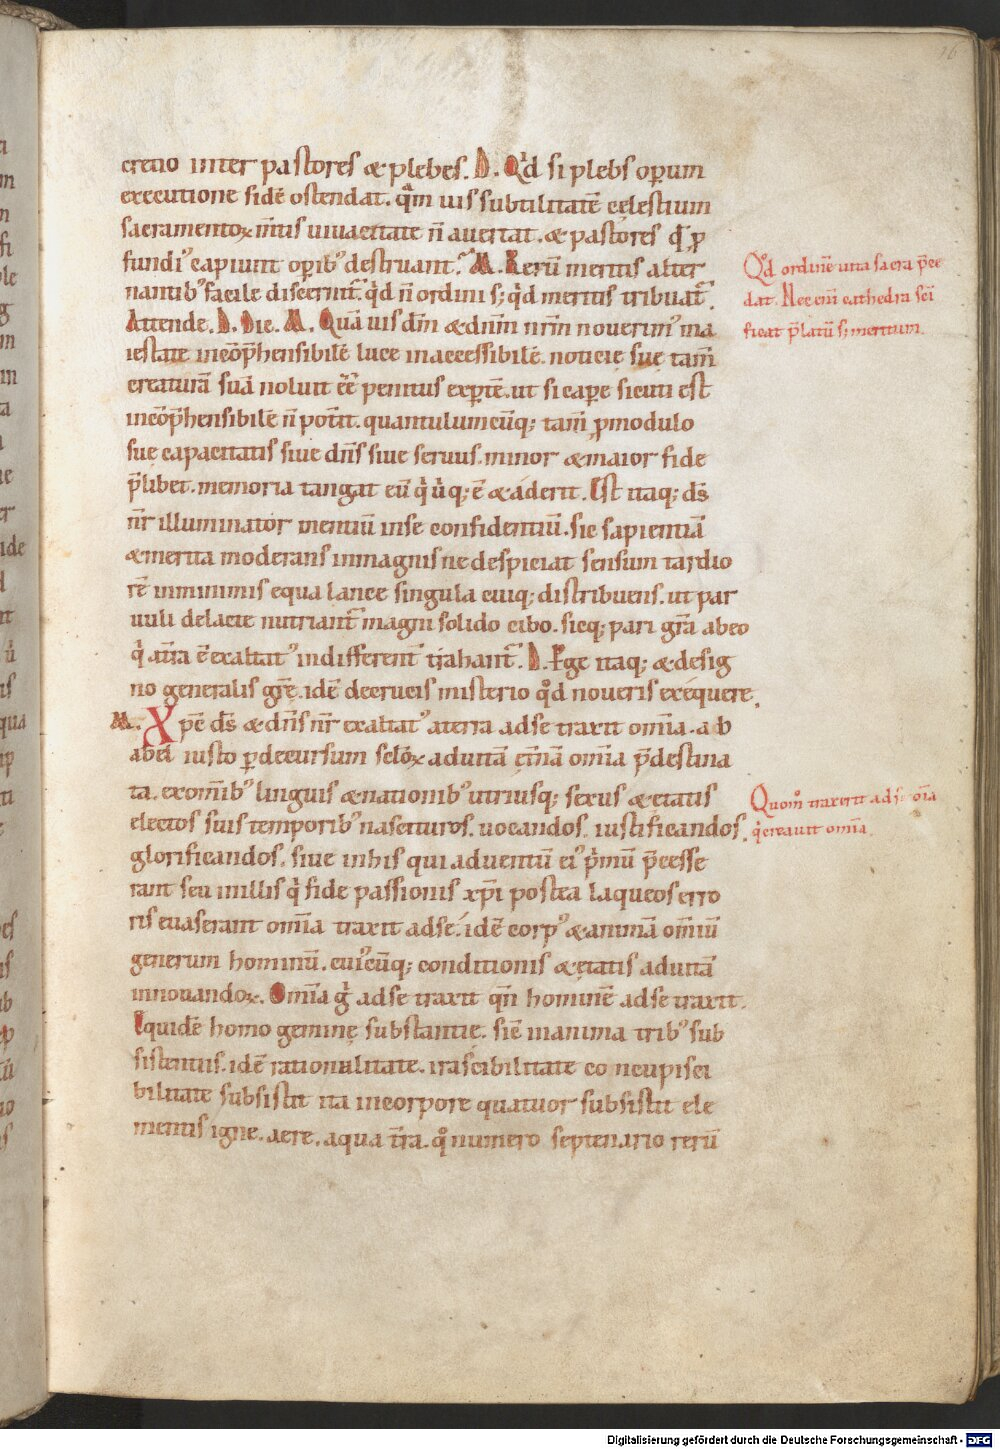 16
cretio inter pastores & plebes. D. Qd si plebs operum
executione fidē ostendat. qm̄ uis subtilitatē cęlestium
sacramentoꝝ m̄tis uiuacitate n̄ auertat. & pastores q̄ ꝓ
fundiꝰ capiunt opibꝰ destruant. M. Rerū meritis alter
nantibꝰ facile discernit̄. qd n̄ ordini sꝫ qd meritis tribuat̄.
Attende. D. Dic. M. Quā uis dm̄ & dnm̄ nrm̄ nouerimꝰ ma
iestate incōp̄hensibilē luce inaccessibilē. noticię sue tam̄
creaturā suā noluit ēē penitus exꝑtē. ut si capē sicuti est
incōp̄hensibilē n̄ potest. quantulumcūqꝫ tam̄ ꝓ modulo
sue capacitatis siue dn̄s siue seruus. minor & maior fide
p̄libet. memoria tangat eū q̇ u̇qꝫ ē & áderit. Est itaqꝫ ds̄
nr̄ illuminator mentiū in se confidentiū. sic sapientiā
& merita moderans in magnis ne despiciat sensum tardio
rē in minimis equa lance singula cuiqꝫ distribuens. ut par
uuli de lacte nutriant̄ magni solido cibo. sicqꝫ pari gr̄a ab eo
q̇ at̄ra ē exaltatꝰ indifferent̄ t̄rahant̄. D. Ege itaqꝫ & desig
no generalis gr̄e. idē decrueis misterio qd noueris exequere.
M. Xpē ds̄ & dn̄s nr̄ exaltatꝰ a terra ad se traxit om̄ia. ab
abel iusto ꝑ decursum sclōꝝ ad uitā et̄nā om̄ia p̄destina
ta. ex om̄ibꝰ linguis & nationibꝰ utriusqꝫ sexus & etatis
electos suis temporibꝰ nascituros. uocandos. iustificandos.
glorificandos. siue in his qui aduentū eiꝰ p̄mū p̄cesse
rant seu in illis q̇ fide passionis xp̄i postea laqueos erro
ris euaserant om̄ia traxit ad se. idē corpꝰ & animā om̄iū
generum hominū. cuiꝰcūqꝫ conditionis & ętatis ad uitā
innouandoꝝ. Om̄ia g̊ ad se traxit qn̄ hominē ad se traxit.
Siquidē homo geminę substantie. sic̄ in anima tribꝰ sub
sistentiis. idē rationalitate. irascibilitate concupisci
bilitate subsistit ita in corpore quatuor subsistit ele
mentis igne. aere. aqua t̄ra. qͦ numero septenario rerū
Qd ordinē uita sacra p̄ce
dat. Nec eni cathedra sc̄i
ficat p̄latū sꝫ meritum.
Quom̊ traxerit ad se om̄ia
q̇ creauit omīa.
Digitalisierung gefördert durch die Deutsche Forschungsgemeinschaft - DFG